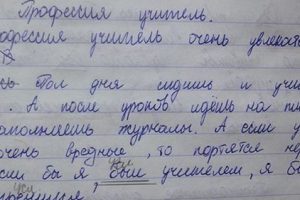 Профессия учитель.
офессия учитель очень увлекат
Пол дня сидишь и учи
. А после уроков идёшь на пи
аполняешь журналы. А если у
очень вредные, то портятся не
сли бы я был учителем, я бы